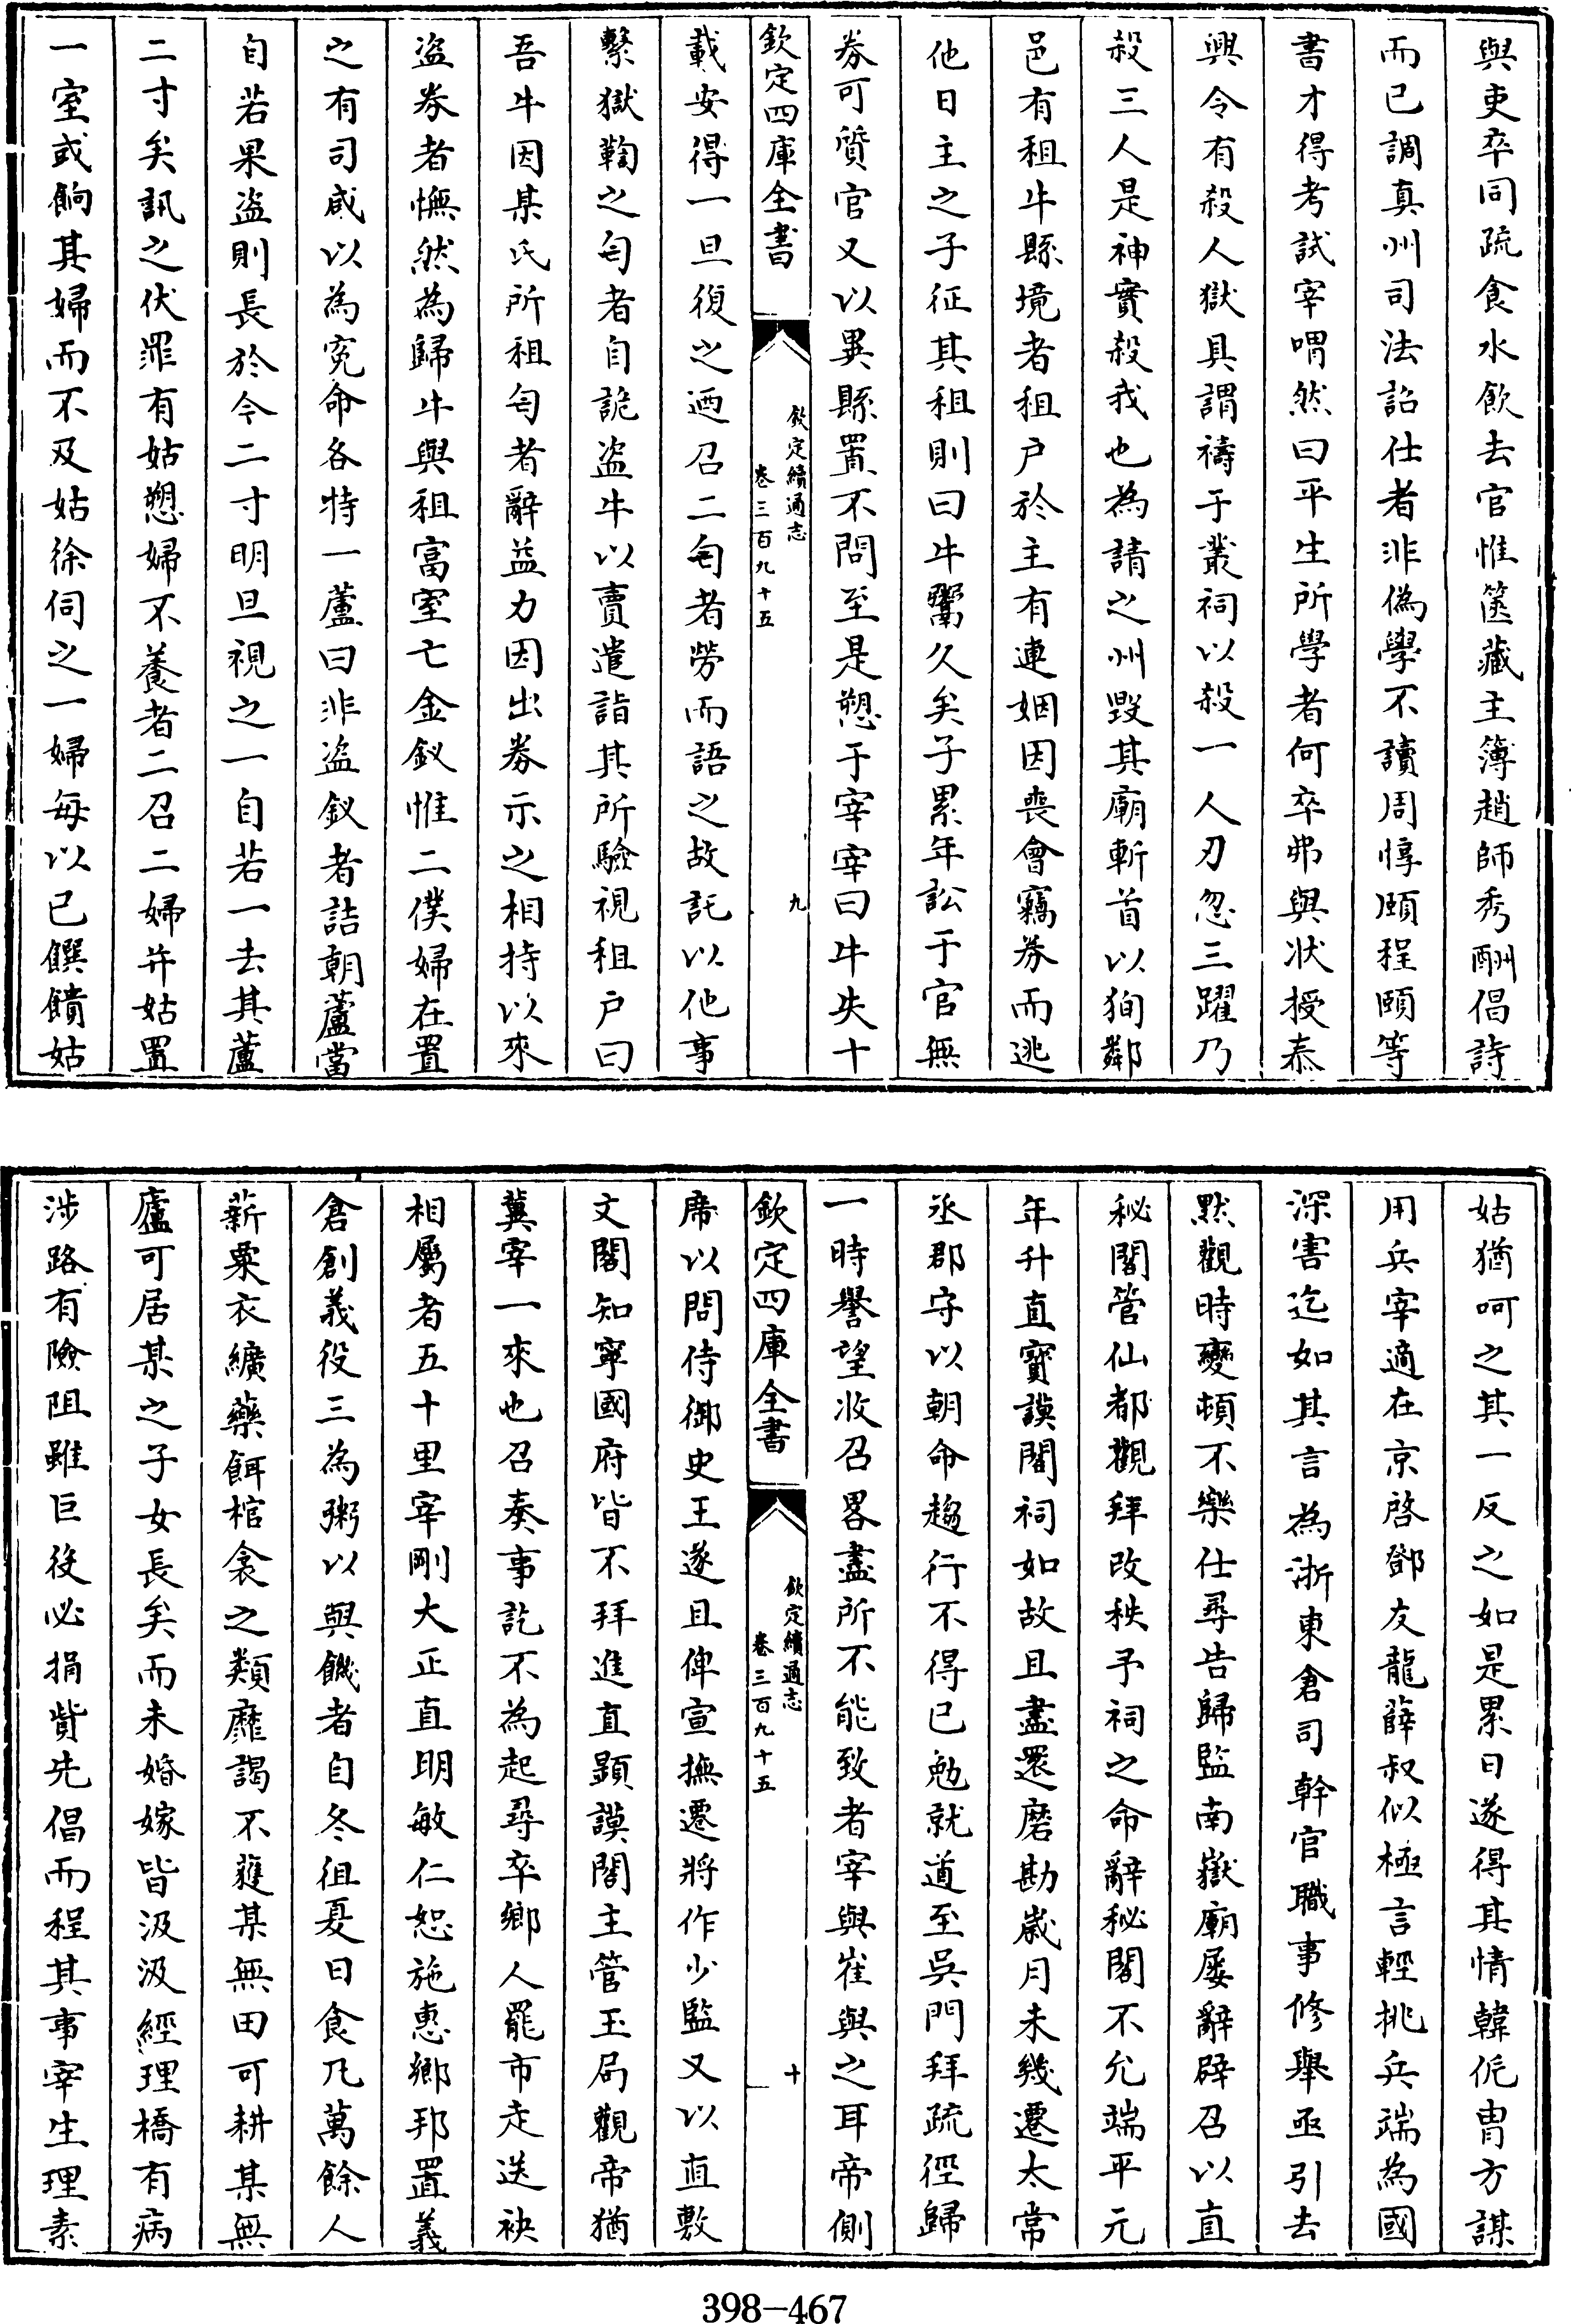 與吏卒同疏食水飲去官惟篋藏主簿趙師秀酬倡詩
而已調真州司法詔仕者非偽學不讀周惇頤程頤等
書才得考試宰喟然曰平生所學者何卒弗與狀授泰
興令有殺人獄具謂禱于叢祠以殺一人刃忽三躍乃
殺三人是神實殺我也為請之州毀其廟斬首以狥鄰
邑有租牛縣境者租户於主有連姻因喪會竊券而逃
他日主之子征其租則曰牛鬻久矣子累年訟于官無
券可質官又以異縣置不問至是愬于宰宰曰牛失十
欽定四庫全書
欽定續通志
卷三百九十五
九
載安得一旦復之廼召二匄者勞而語之故託以他事
繫獄鞫之匄者自詭盜牛以賣遣詣其所驗視租户曰
吾牛因某氏所租匄者辭益力因出券示之相持以來
盜券者憮然為歸牛與租富室亡金釵惟二僕婦在置
之有司咸以為寃命各特一蘆曰非盜釵者詰朝蘆當
自若果盜則長於今二寸明旦視之一自若一去其蘆
二寸矣訊之伏罪有姑愬婦不養者二召二婦并姑置
一室或餉其婦而不及姑徐伺之一婦每以已饌饋姑
姑猶呵之其一反之如是累日遂得其情韓侂胄方謀
用兵宰適在京啓鄧友龍薛叔似極言輕挑兵端為國
深害迄如其言為浙東倉司幹官職事修舉亟引去
黙觀時變頓不樂仕尋告歸監南嶽廟屢辭辟召以直
秘閣管仙都觀拜改秩予祠之命辭秘閣不允端平元
年升直寳謨閣祠如故且盡還磨勘歲月未幾遷太常
丞郡守以朝命趨行不得已勉就道至吳門拜疏徑歸
一時譽望收召畧盡所不能致者宰與崔與之耳帝側
欽定四庫全書
欽定續通志
卷三百九十五
十
席以問侍御史王遂且俾宣撫遷將作少監又以直敷
文閣知寧國府皆不拜進直顯謨閣主管玉局觀帝猶
冀宰一來也召奏事訖不為起尋卒鄉人罷市走送袂
相屬者五十里宰剛大正直明敏仁恕施惠鄉邦置義
倉創義役三為粥以與饑者自冬徂夏日食凡萬餘人
薪粟衣纊藥餌棺衾之類靡謁不蓰某無田可耕某無
廬可居某之子女長矣而未婚嫁皆汲汲經理橋有病
涉路有險阻雖巨役必捐貲先倡而程其事宰生理素
398-467